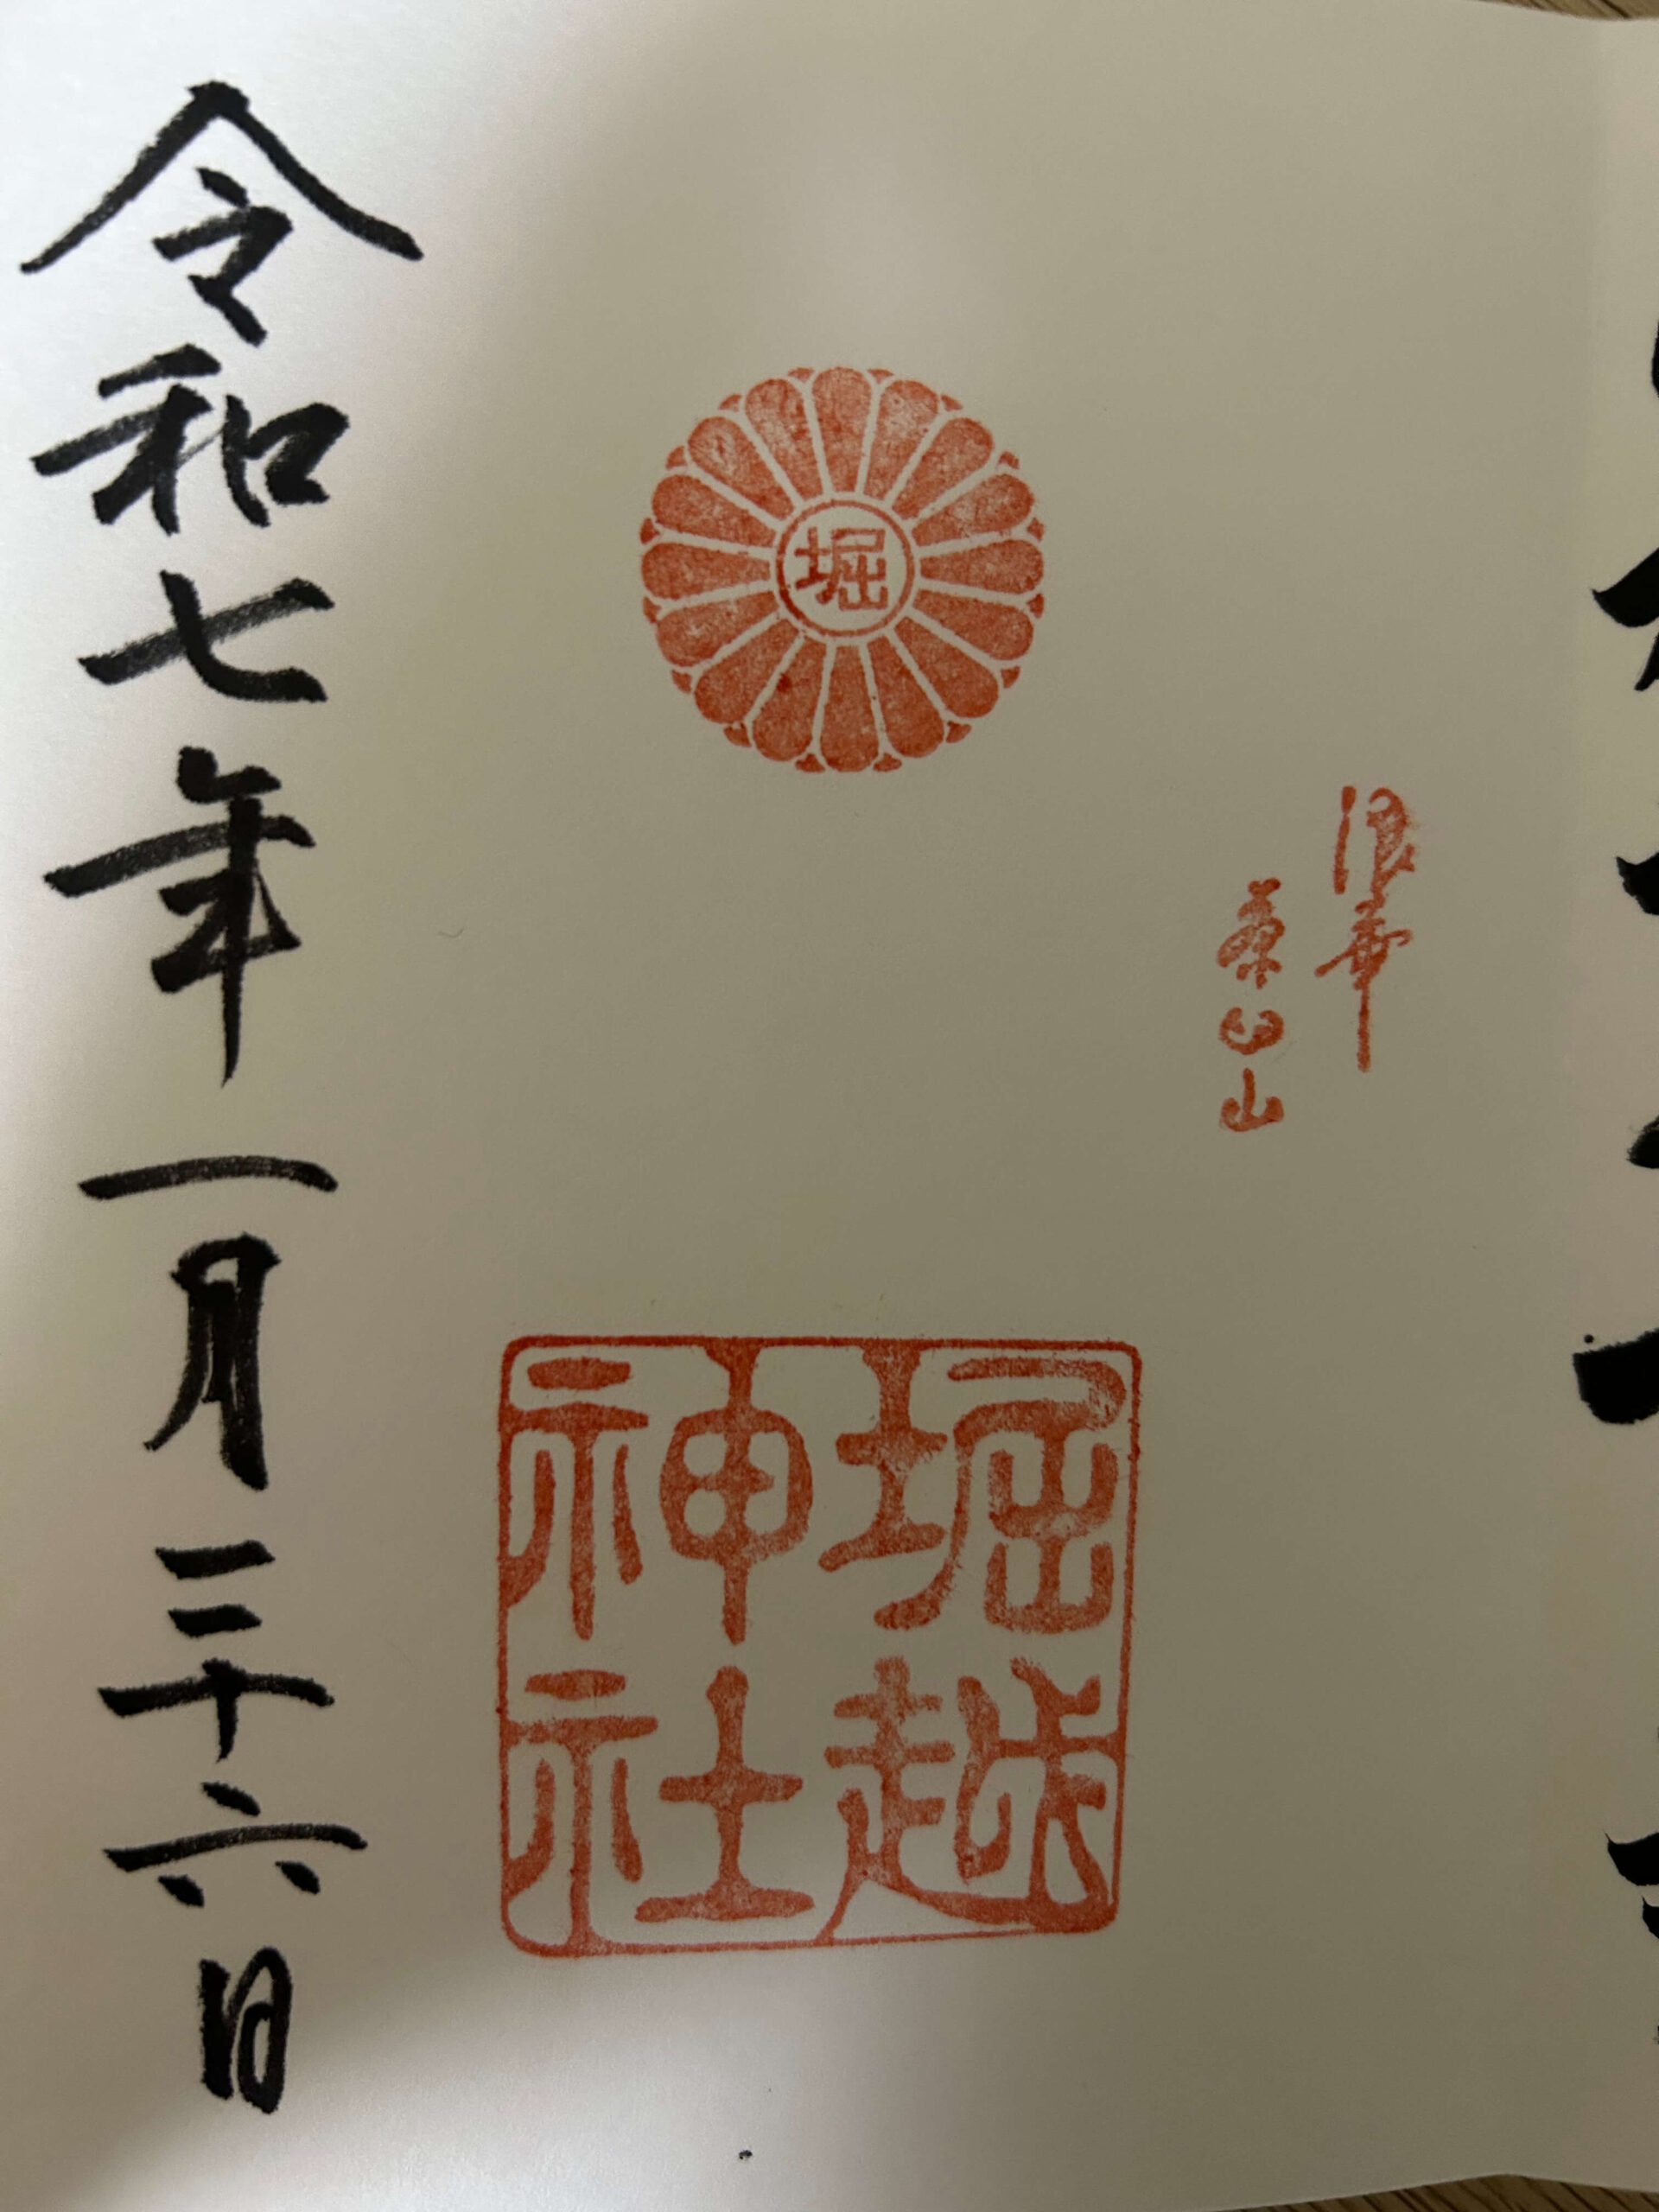 浪華
茶臼山
堀
堀越
神社
令和七年一月二十六日